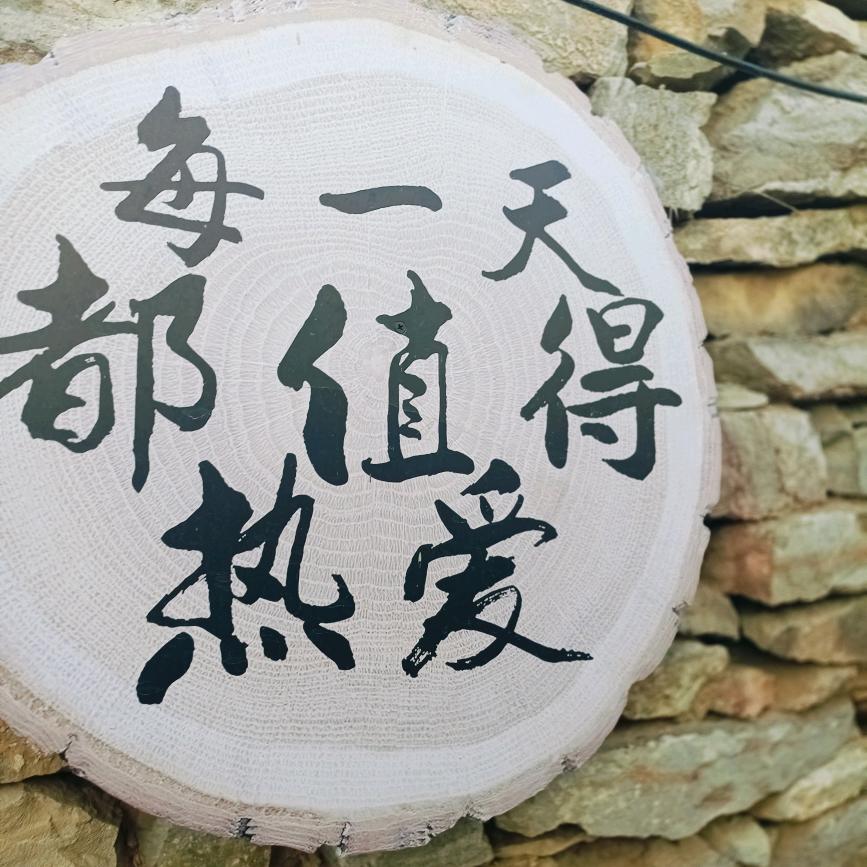 每一天
都值得
热爱